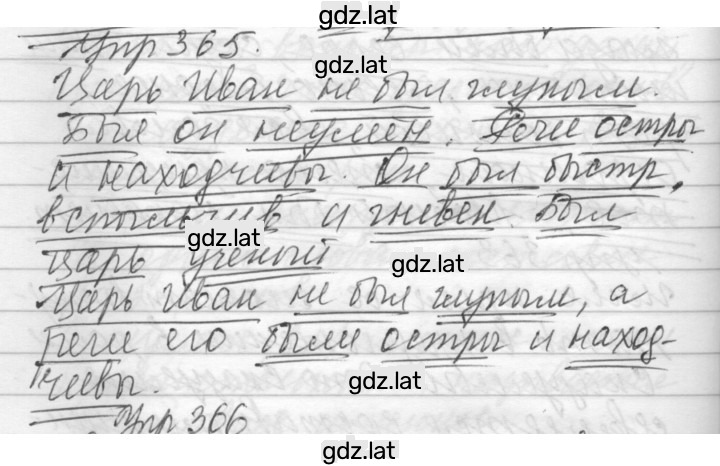 gdz.lat
Упр 365.
gdz.lat
Царь Иван не был глупым.
Был он неумён. Речи остры
и находчивы. Он был быстр,
вспыльчив и гневен. Был
gdz.lat
царь учёный
gdz.lat
Царь Иван не был глупым, а
речи его были остры и наход-
чивы.
gdz.lat
Упр 366
gdz.lat